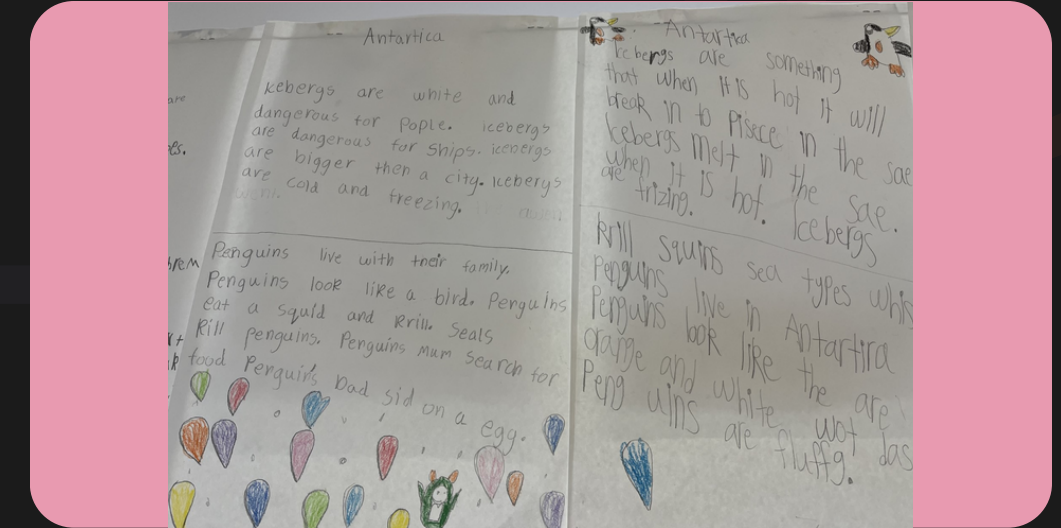 Antartica
Icebergs are white and
dangerous for Pople. icebergs
are dangerous for ships. icebergs
are bigger then a city. Icebergs
are cold and freezing.
Penguins live with their family.
Penguins look like a bird. Penguins
eat a squid and Krill. Seals
Kill penguins. Penguins mum search for
food Penguin's Dad sid on a egg.
are
es.
Antartica
Icebergs are something
that when it is hot it will
break in to Pisece in the sae
Icebergs melt in the sae.
when it is hot. Icebergs
are frizing.
Krill squins sea types whis
Penguins live in Antartira
Penguins look like the are
orange and white wot das
Peng uins are fluffy.